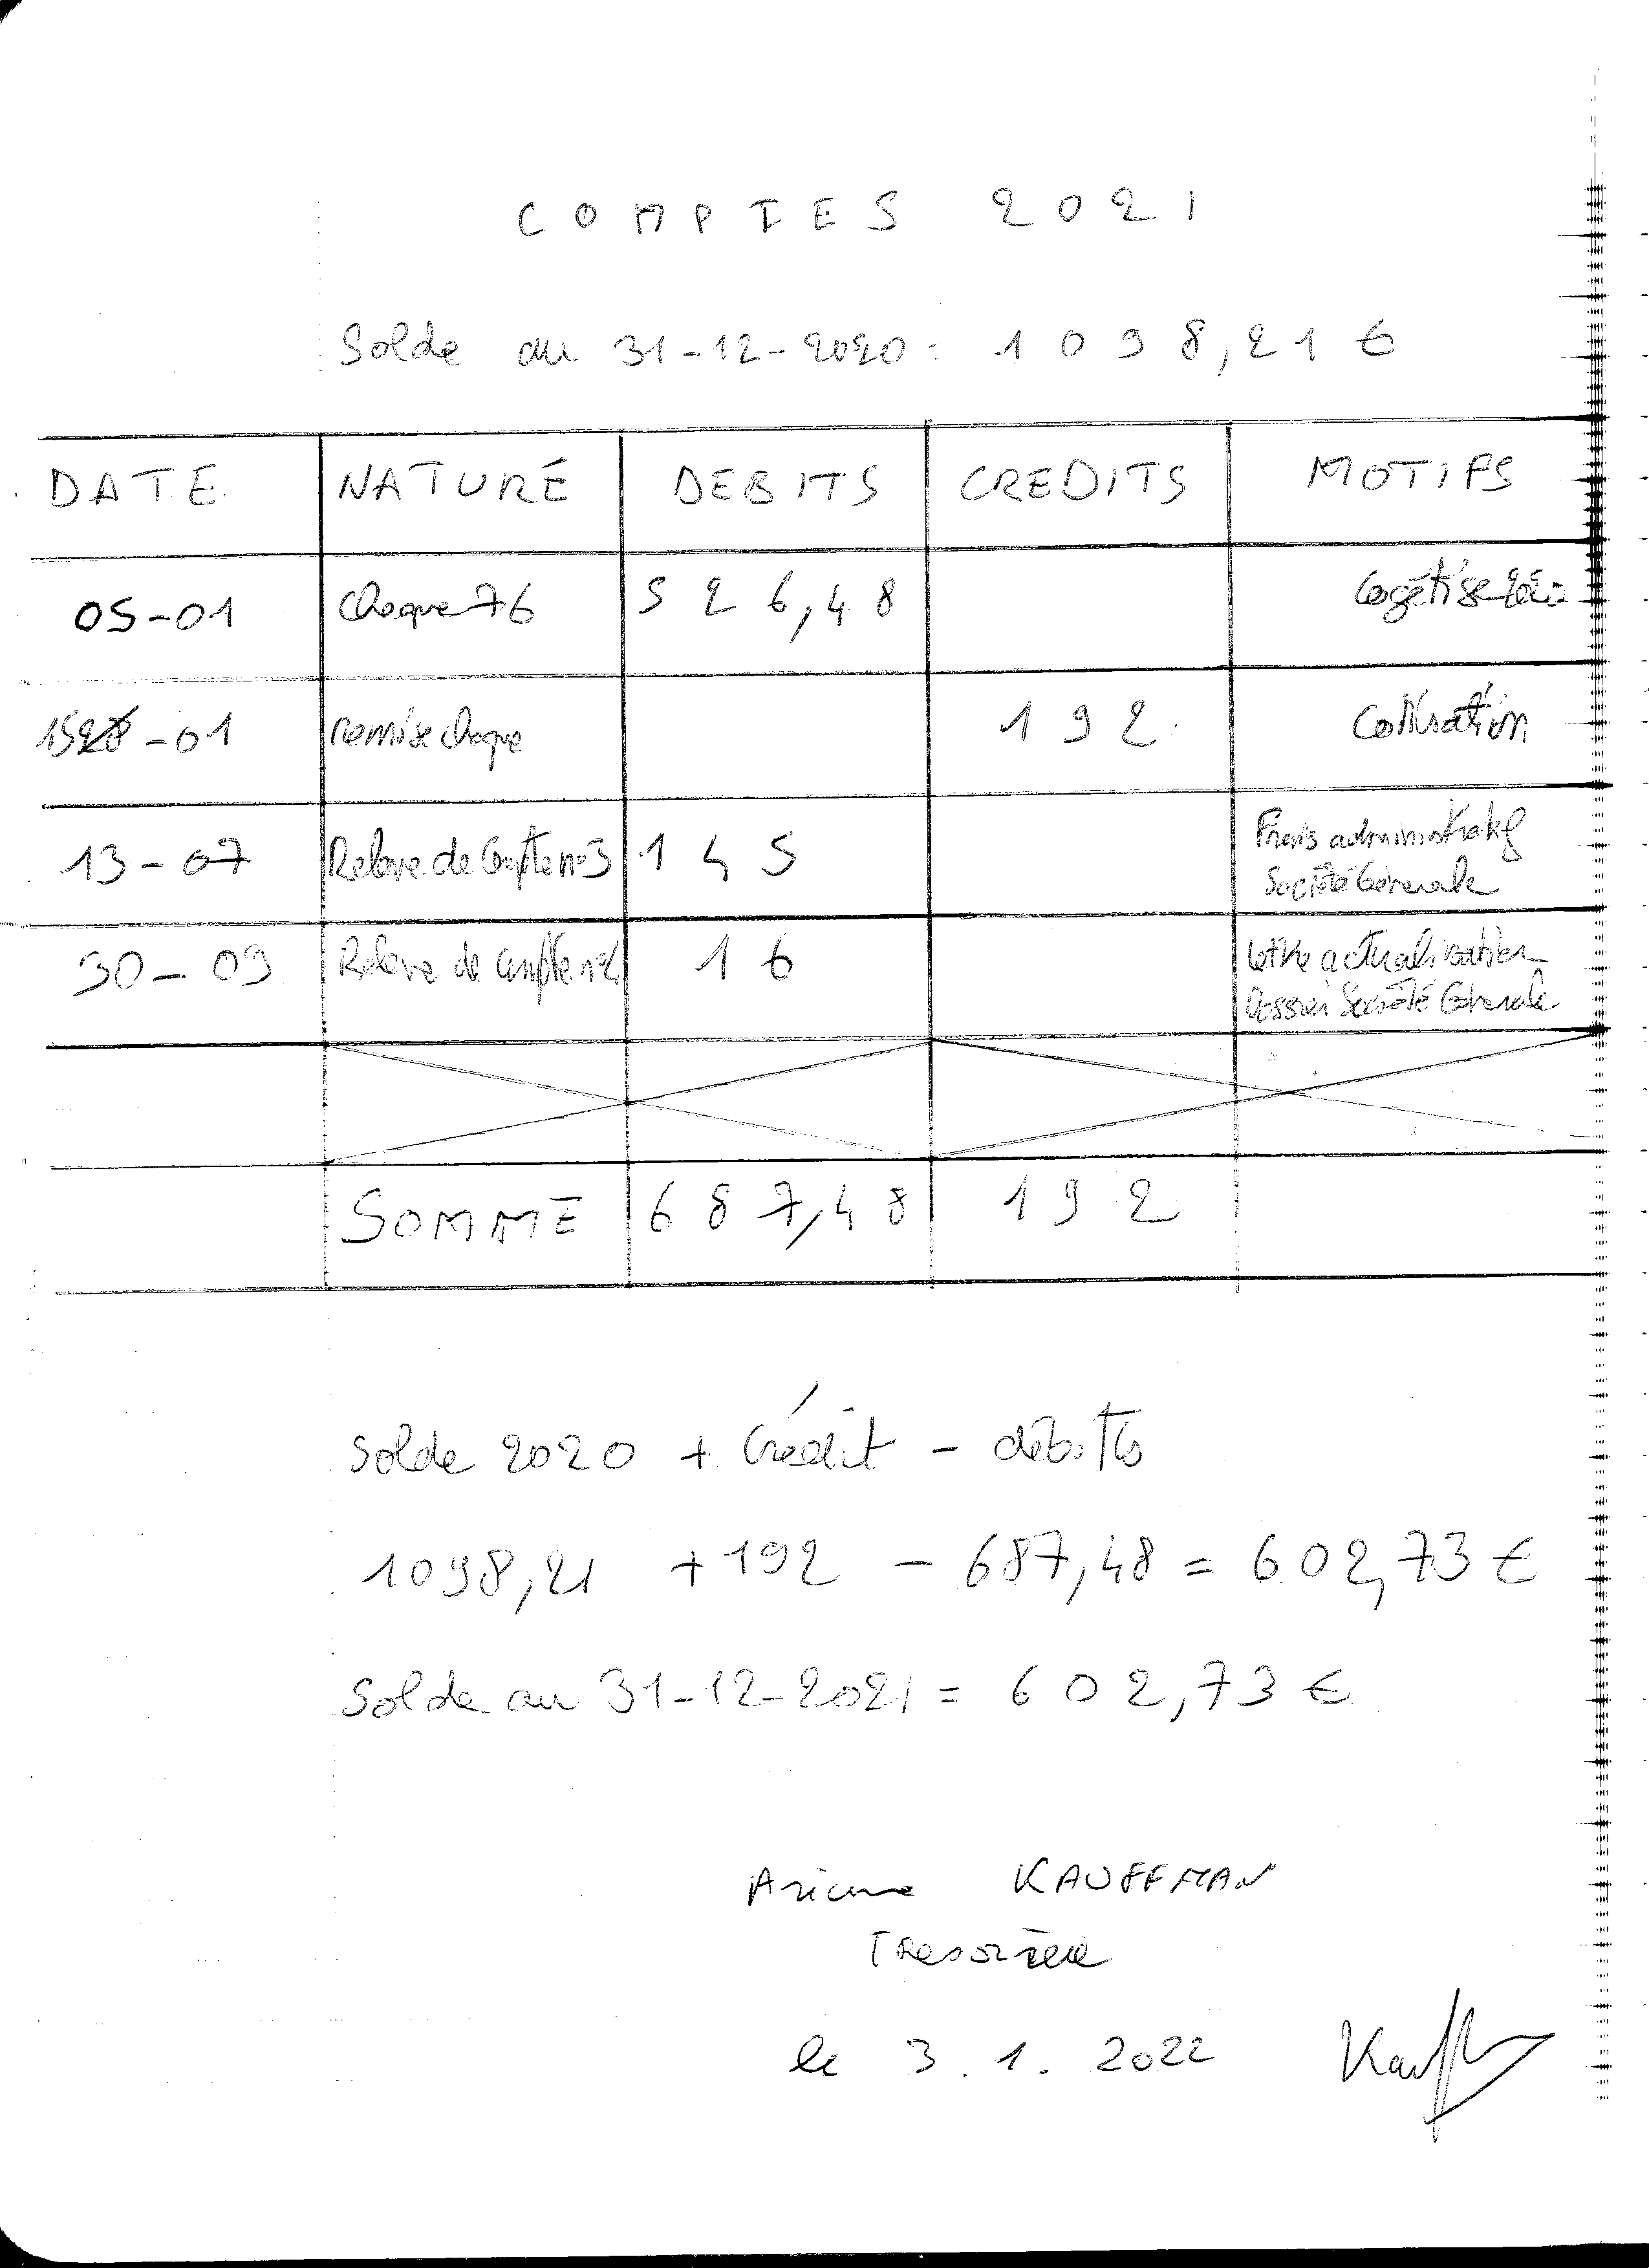 COMPTES 2021
Solde au 31-12-2020 : 1098,21 €
DATE NATURE DEBITS CREDITS MOTIFS
05-01 Cheque 76 526,48
15 -01 remise cheque 192 Cotisation
13-07 Releve de Compte n°3 145 Frais administratif
Société Générale
30-09 Releve de compte n°4 16 lettre actualisation
Dossier Société Générale
SOMME 687,48 192
Solde 2020 + Crédit - débits
1098,21 + 192 - 687,48 = 602,73 €
Solde au 31-12-2021 = 602,73 €
Ariane KAUFFMAN
Tresorière
le 3.1.2022